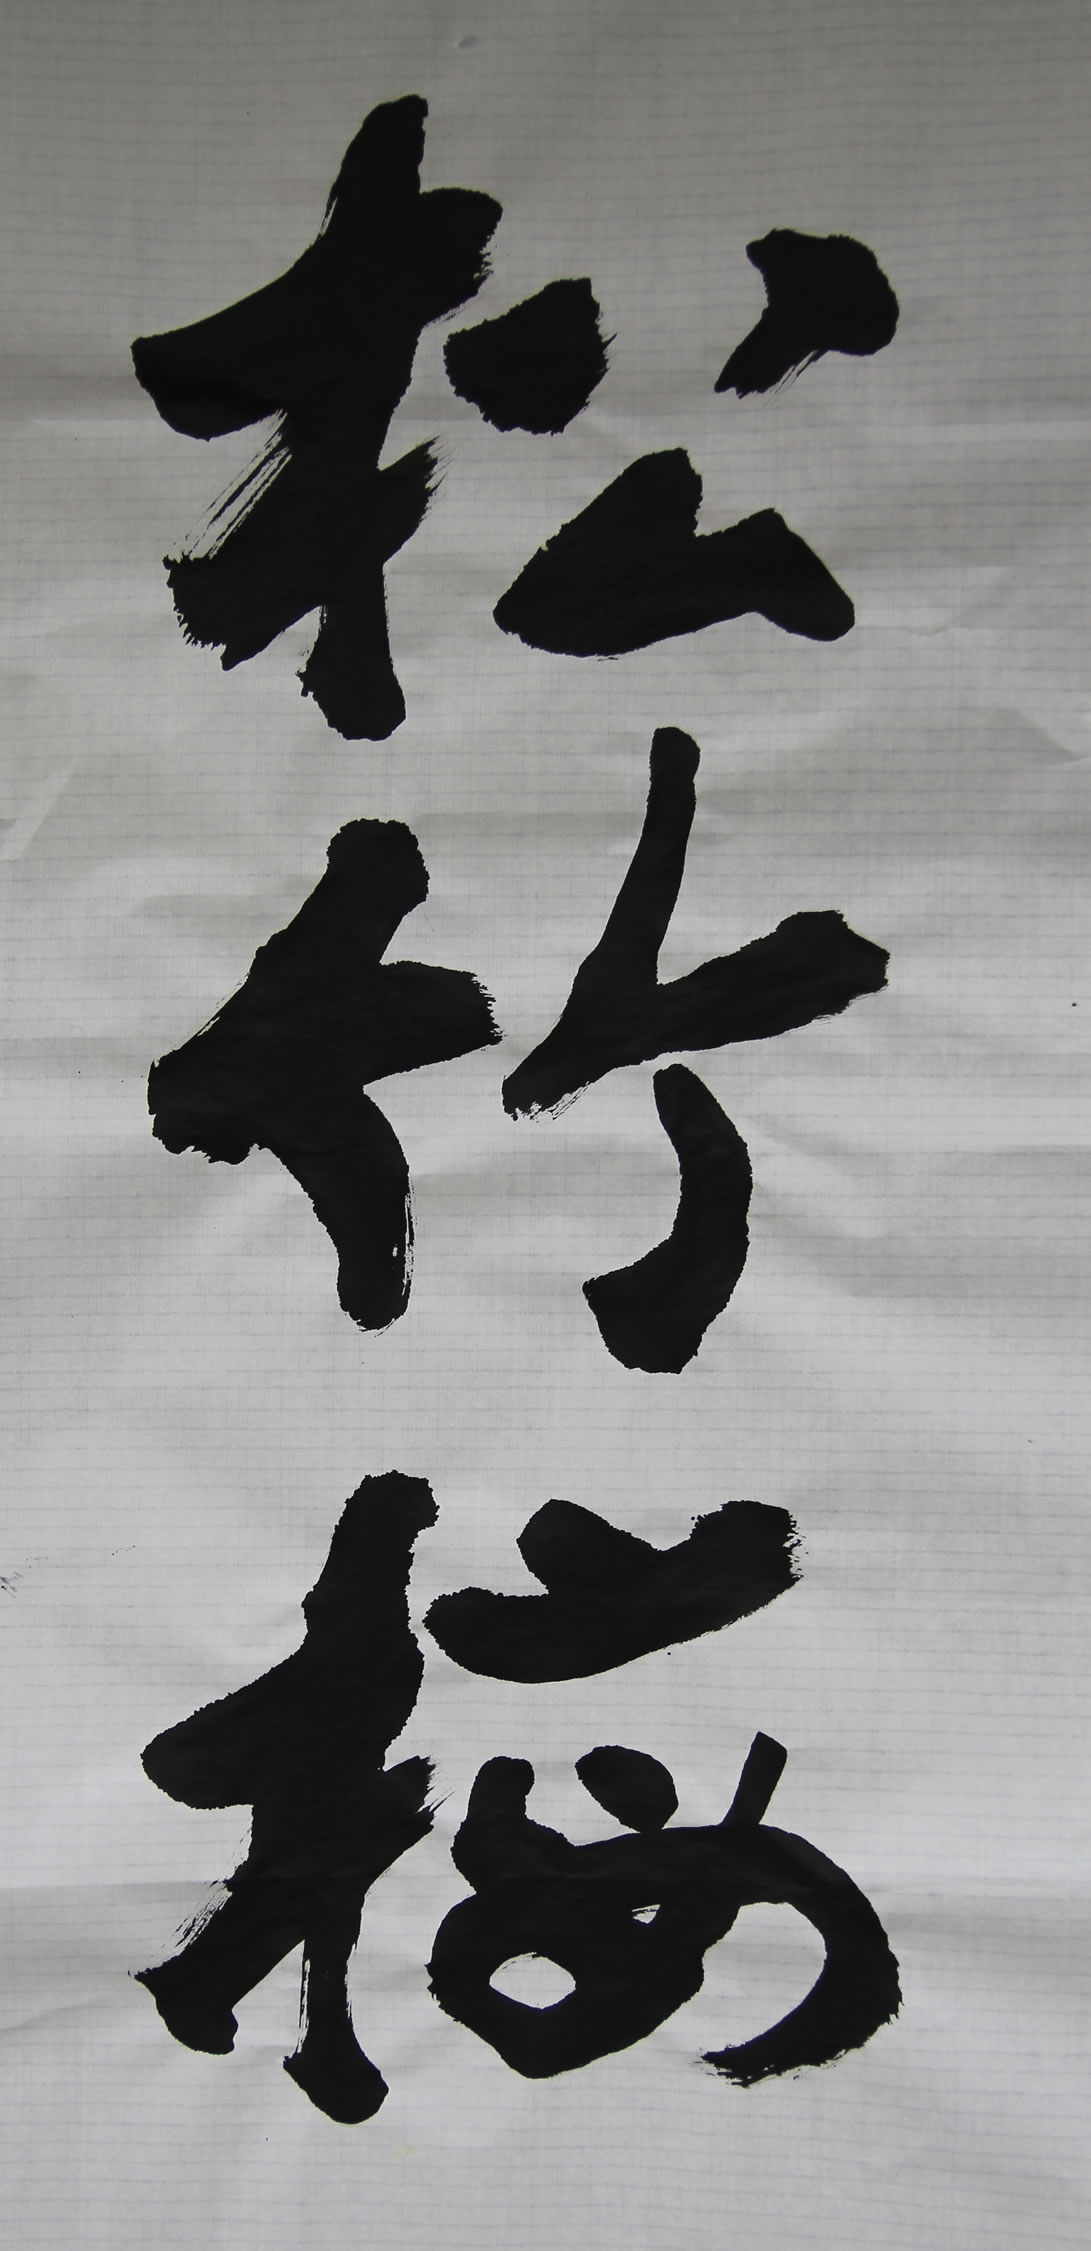 松竹梅